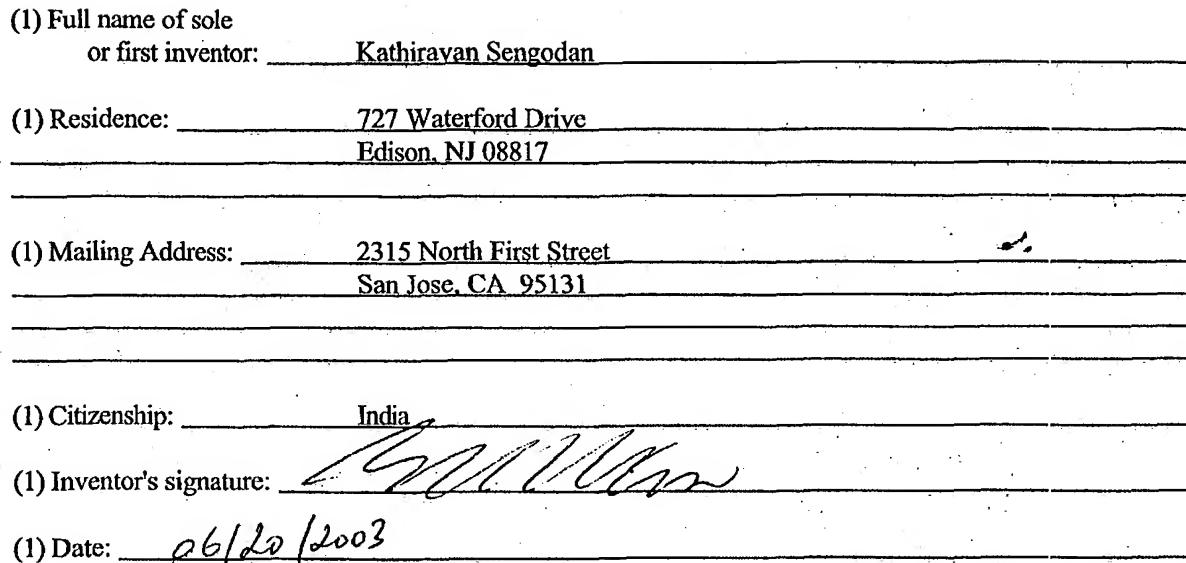 (1) Full name of sole
or first inventor: Kathirayan Sengodan
(1) Residence: 727 Waterford Drive
Edison, NJ 08817
(1) Mailing Address: 2315 North First Street
San Jose, CA 95131
(1) Citizenship: India
(1) Inventor's signature:
(1) Date: 06/20/2003